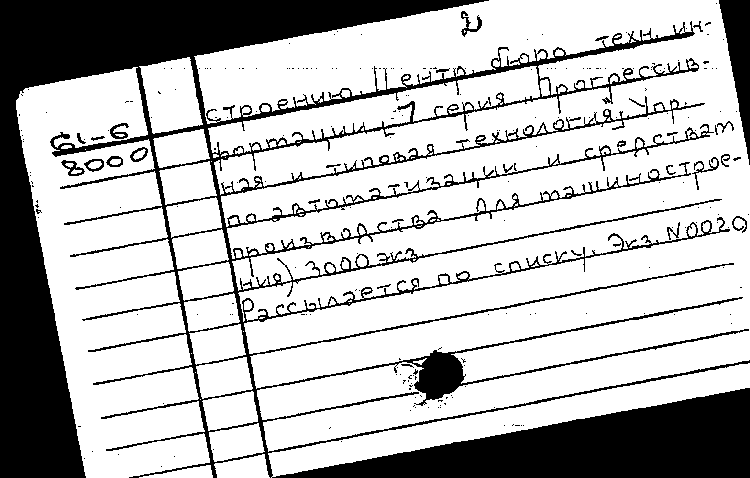 2
строению. Центр. бюро техн. ин-
61-6
8000
формации. [1 серия „Прогрессив-
ная и типовая технология"] Упр.
по автоматизации и средствам
производства для машинострое-
ния). 3000 экз.
Рассылается по списку. Экз. N0020